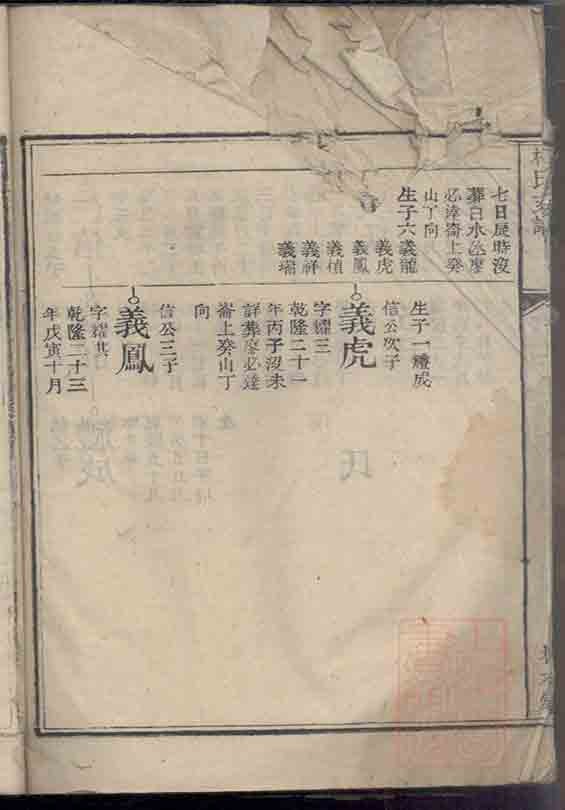 七日辰時沒
葬白水
必達崙上癸
山丁向
生子六義龍
義虎
義鳳
義植
義祥
義瑞
生子一禮成
信公次子
義虎
字耀三
乾隆二十一
年丙子沒未
詳葬廖必達
崙上癸山丁
向
信公三子
義鳳
字耀其
乾隆二十三
年戊寅十月